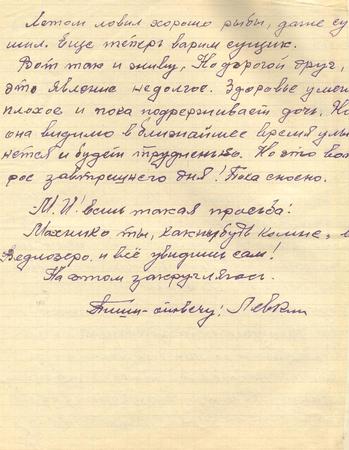 Летом ловил хорошо рыбы, даже су
шил. Еще теперь варим сущик.
Вот так и живу. Но дорогой друг,
это явление недолгое. Здоровье у меня
плохое и пока поддерживает дочь. Но
она видимо в ближайшее время
нется и будет трудненько. Но это воп
рос завтрешнего дня! Пока сносно.
М.И! есть такая просьба!
Махнико ты, как нибудь ко мне, в
Ведлозеро, и всё увидишь сам!
На этом закругляюсь.
Пиши - отвечу! Левкин